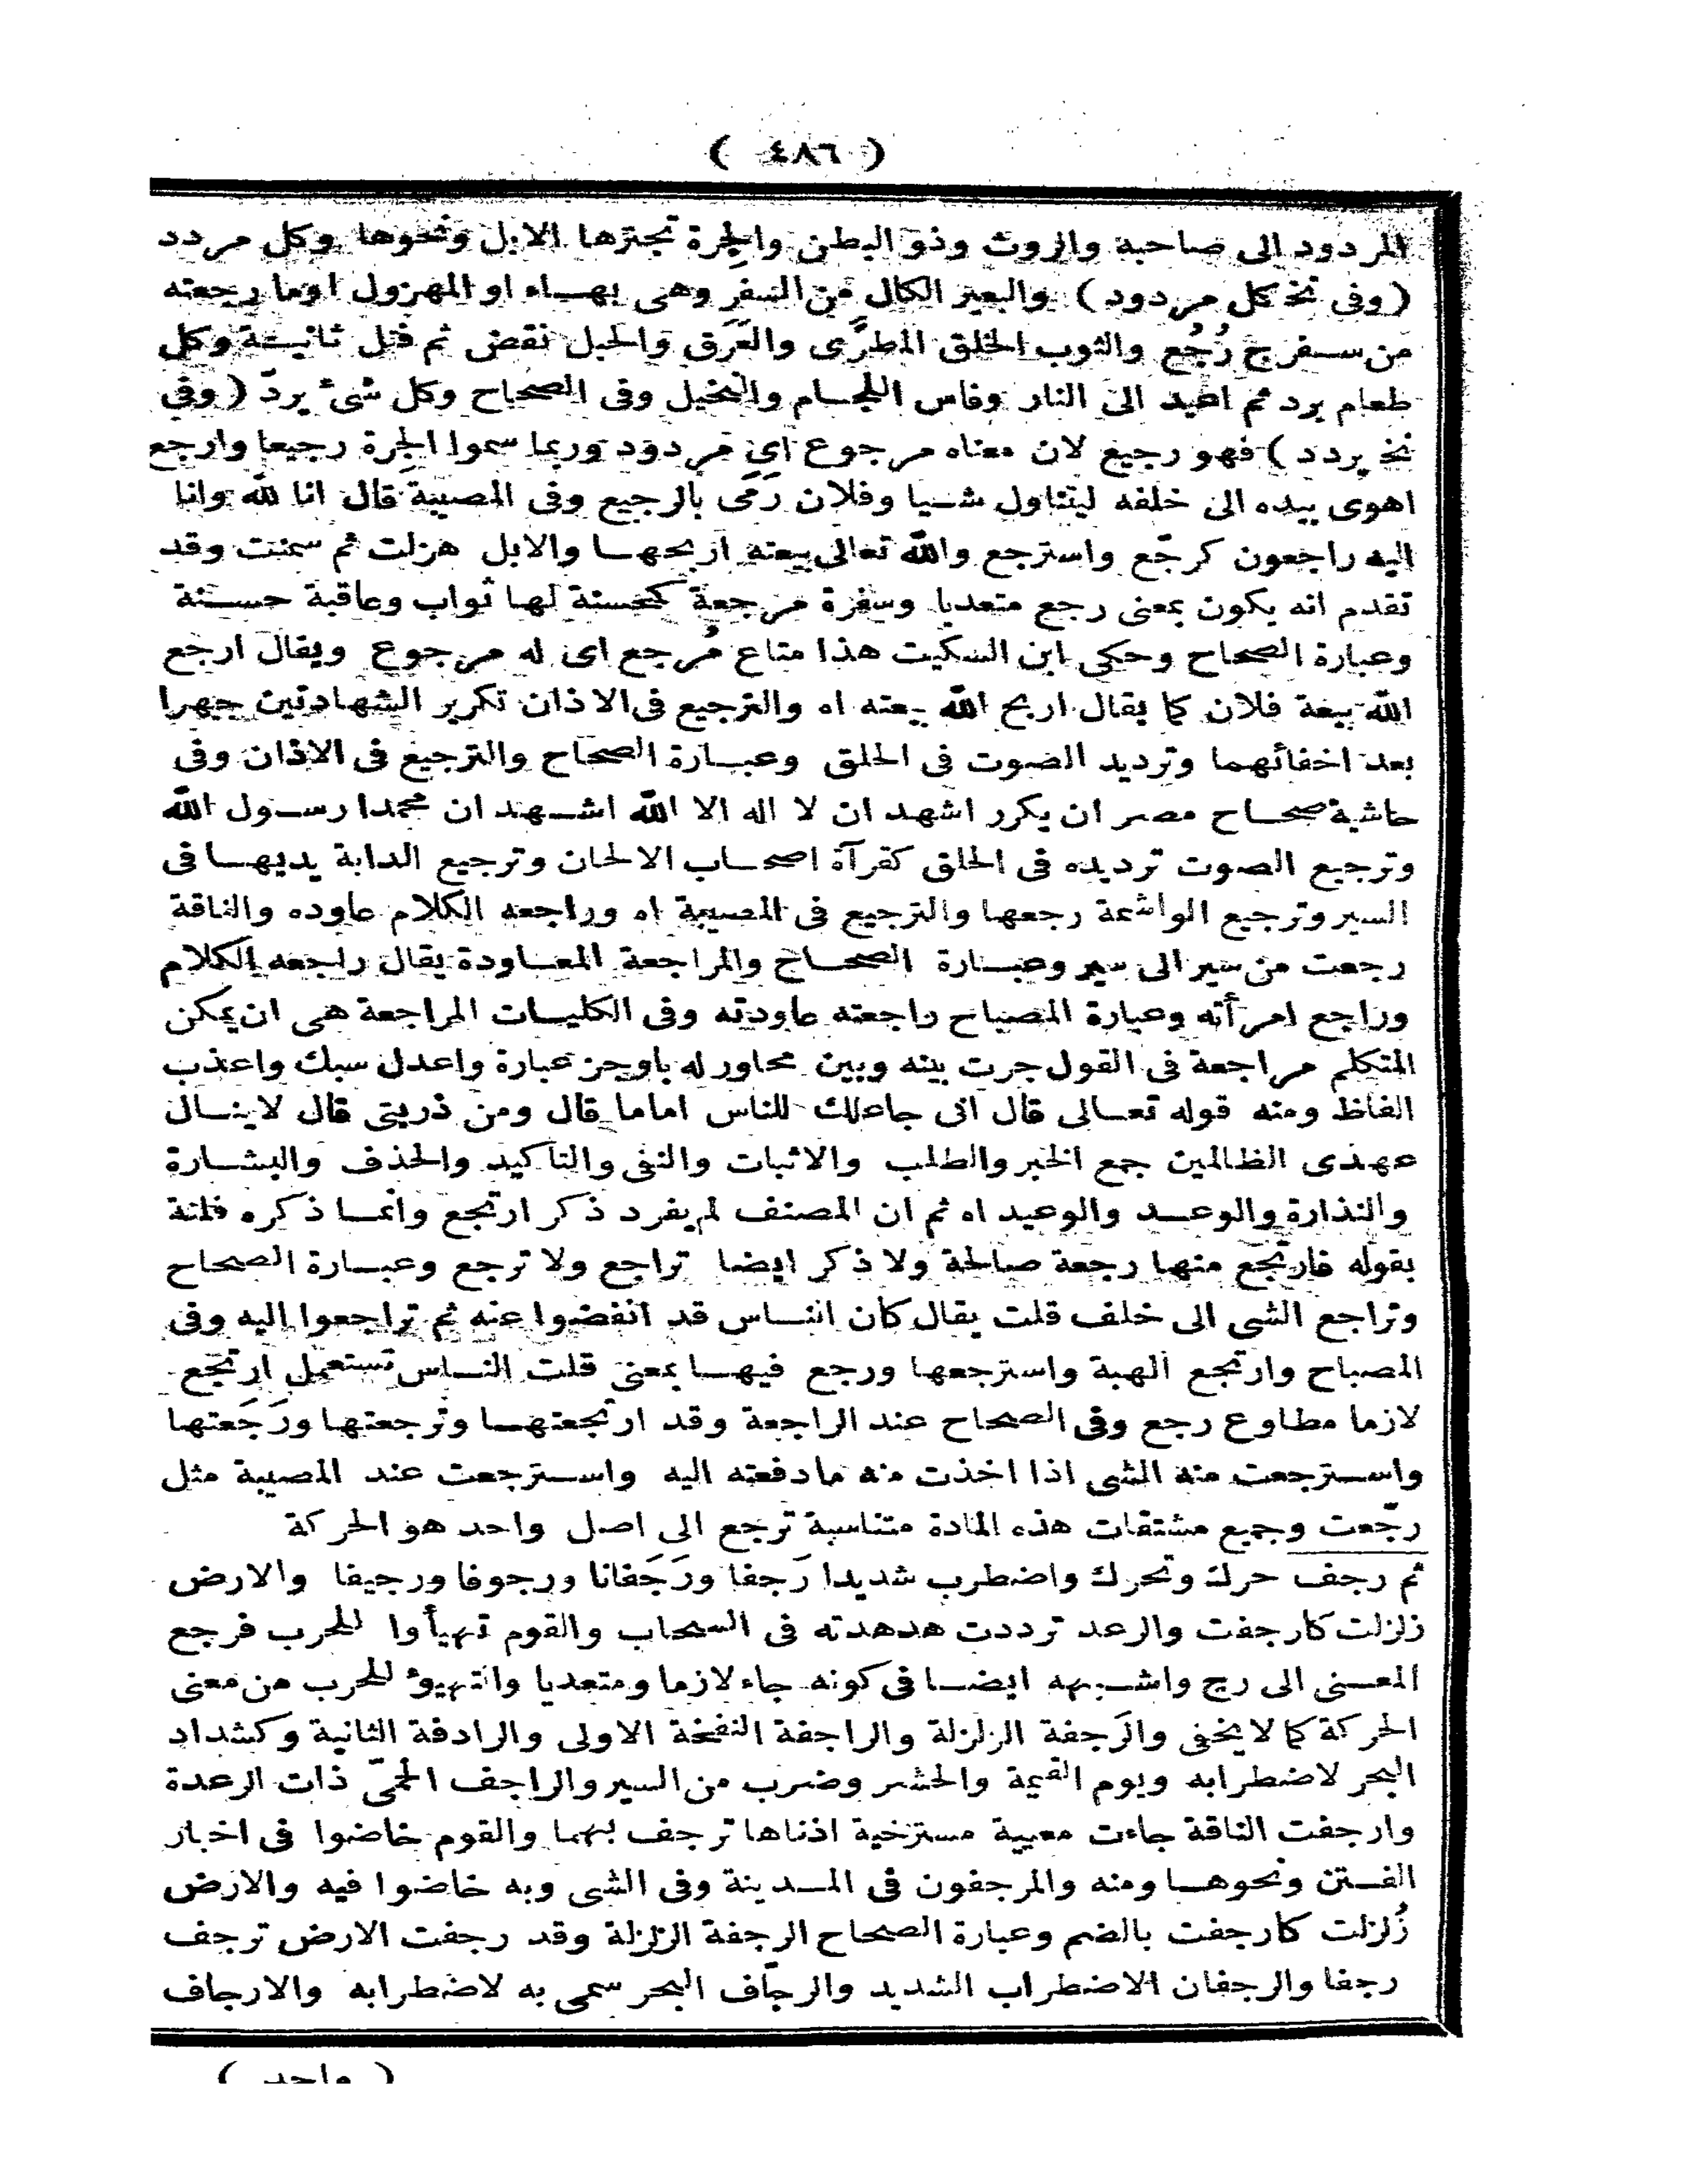 ( ٤٨٦ )
المردود الى صاحبه والروث وذو البطن والجِرة تجترها الابل ونحوها وكل مردد
( وفى نخ كل مردود ) والبعير الكال من السفر وهى بهاء او المهزول اوما رجعته
من سفر ج رُجُع والثوب الخلق المطرَّى والعَرَق والحبل نقض ثم فتل ثانية وكل
طعام برد ثم اعيد الى النار وفاس اللجام والبخيل وفى الصحاح وكل شئ يردّ ( وفى
نخ يردد ) فهو رجيع لان معناه مرجوع اى مردود وربما سموا الجِرة رجيعا وارجع
اهوى بيده الى خلفه ليتناول شيا وفلان رَمَى بالرجيع وفى المصيبة قال انا لله وانا
اليه راجعون كرجّع واسترجع والله تعالى بيعته اربحها والابل هزلت ثم سمنت وقد
تقدم انه يكون بمعنى رجع متعديا وسفرة مرجعة كمحسنة لها ثواب وعاقبة حسنة
وعبارة الصحاح وحكى ابن السكيت هذا متاع مُرجع اى له مرجوع ويقال ارجع
الله بيعة فلان كما يقال اربح الله بيعته اه والترجيع فى الاذان تكرير الشهادتين جهرا
بعد اخفائهما وترديد الصوت فى الحلق وعبارة الصحاح والترجيع فى الاذان وفى
حاشية صحاح مصر ان يكرر اشهد ان لا اله الا الله اشهد ان محمدا رسول الله
وترجيع الصوت ترديده فى الحلق كقرآة اصحاب الالحان وترجيع الدابة يديها فى
السير وترجيع الواشمة رجعها والترجيع فى المصيبة اه وراجعه الكلام عاوده والناقة
رجعت من سير الى سير وعبارة الصحاح والمراجعة المعاودة يقال راجعه الكلام
وراجع امرأته وعبارة المصباح راجعته عاودته وفى الكليات المراجعة هى ان يحكى
المتكلم مراجعة فى القول جرت بينه وبين محاور له باوجز عبارة واعدل سبك واعذب
الفاظ ومنه قوله تعالى قال انى جاعلك للناس اماما قال ومن ذريتى قال لا ينال
عهدى الظالمين جمع الخبر والطلب والاثبات والنفى والتاكيد والحذف والبشارة
والنذارة والوعد والوعيد اه ثم ان المصنف لم يفرد ذكر ارتجع وانما ذكره فلتة
بقوله فارتجع منها رجعة صالحة ولا ذكر ايضا تراجع ولا ترجع وعبارة الصحاح
وتراجع الشى الى خلف قلت يقال كان الناس قد انفضوا عنه ثم تراجعوا اليه وفى
المصباح وارتجع الهبة واسترجعها ورجع فيها بمعنى قلت الناس تستعمل ارتجع
لازما مطاوع رجع وفى الصحاح عند الراجعة وقد ارتجعتها وترجعتها ورَجَعتها
واسترجعت منه الشى اذا اخذت منه ما دفعته اليه واسترجعت عند المصيبة مثل
رجّعت وجميع مشتقات هذه المادة متناسبة ترجع الى اصل واحد هو الحركة
ثم رجف حرك وتحرك واضطرب شديدا رَجفا ورَجَفانا ورجوفا ورجيفا والارض
زلزلت كارجفت والرعد ترددت هدهدته فى السحاب والقوم تهيأوا للحرب فرجع
المعنى الى رج واشبهه ايضا فى كونه جاء لازما ومتعديا والتهيوء للحرب من معنى
الحركة كما لا يخفى والرَجفة الزلزلة والراجفة النفخة الاولى والرادفة الثانية وكشداد
البحر لاضطرابه ويوم القيمة والحشر وضرب من السير والراجف الحُمّى ذات الرعدة
وارجفت الناقة جاءت معيية مسترخية اذناها ترجف بهما والقوم خاضوا فى اخبار
الفتن ونحوها ومنه والمرجفون فى المدينة وفى الشى وبه خاضوا فيه والارض
زُلزلت كارجفت بالضم وعبارة الصحاح الرجفة الزلزلة وقد رجفت الارض ترجف
رجفا والرجفان الاضطراب الشديد والرجّاف البحر سمى به لاضطرابه والارجاف
( واحد )